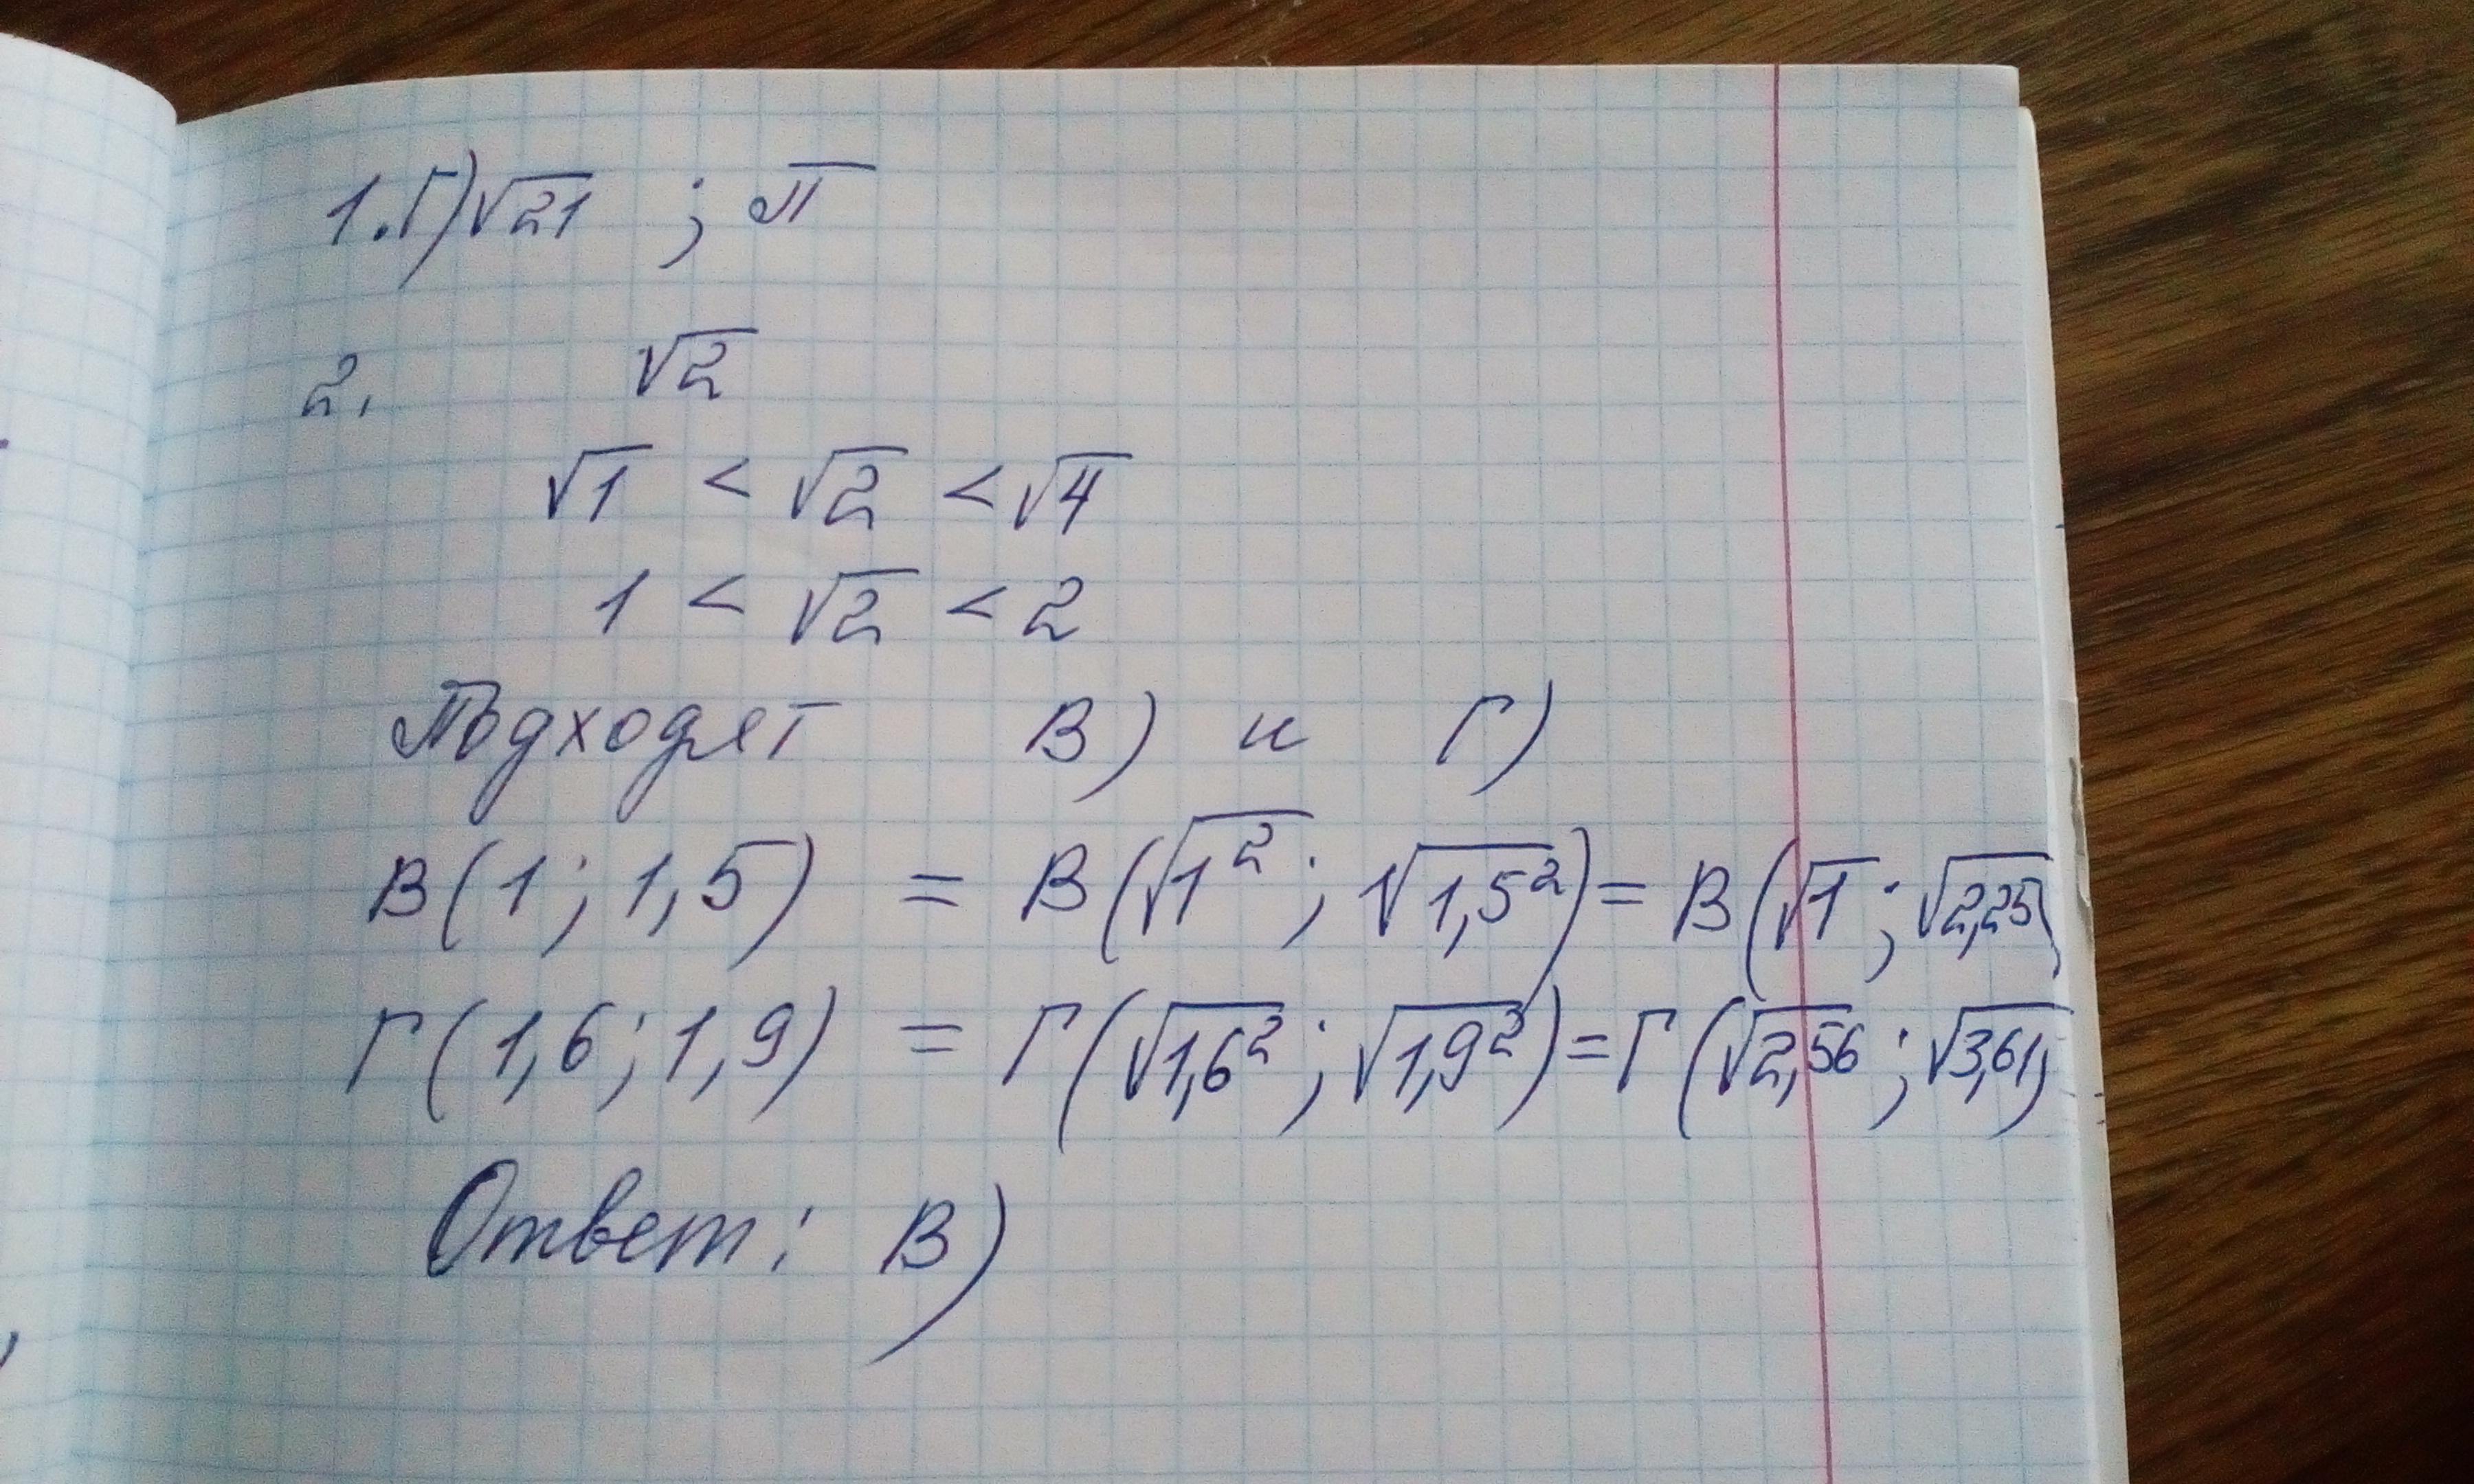 1. Г) √21 ; π
2. √2
√1 < √2 < √4
1 < √2 < 2
Подходят В) и Г)
В(1; 1,5) = В(√1²; √1,5²) = В(√1; √2,25)
Г(1,6; 1,9) = Г(√1,6²; √1,9²) = Г(√2,56; √3,61)
Ответ: В)